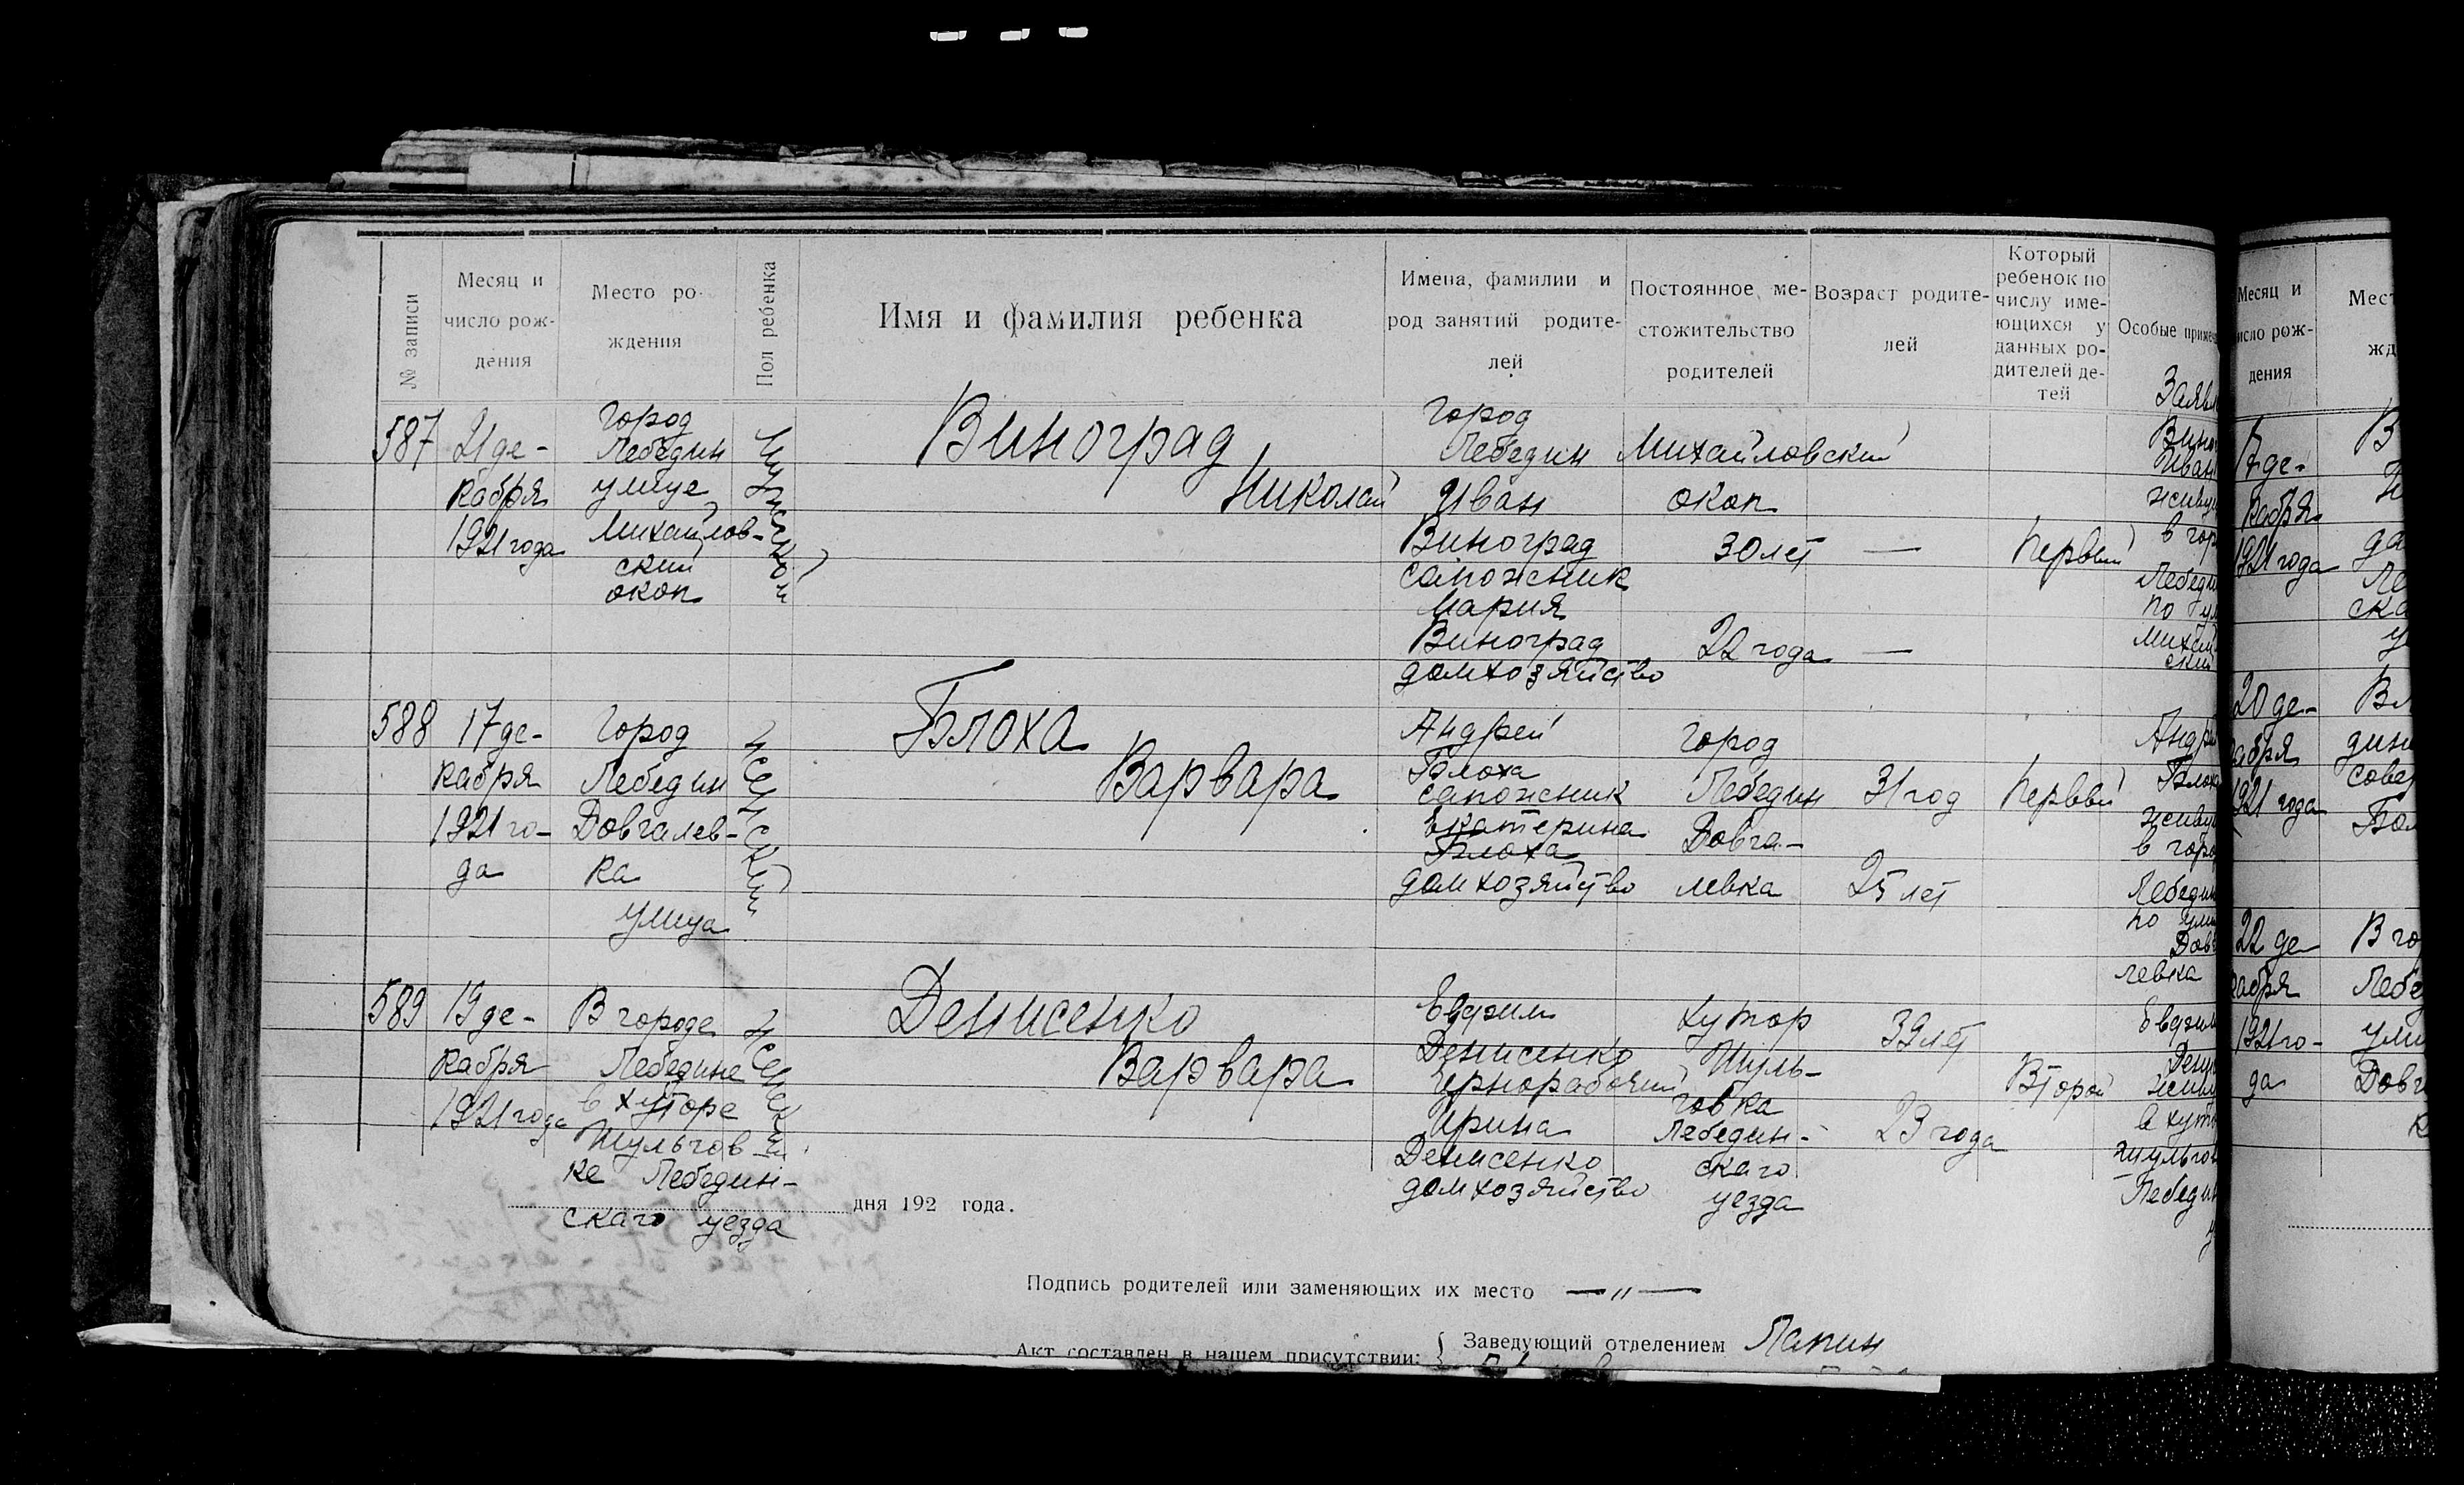 № записи
Месяц и
число рож-
дения
Место ро-
ждения
Пол ребенка
Имя и фамилия ребенка
Имена, фамилии и
род занятий родите-
лей
Постоянное ме-
стожительство
родителей
Возраст родите-
лей
Который
ребенок по
числу име-
ющихся у
данных ро-
дителей де-
тей
Особые примеч
587
21 де-
кабря
1921 года
город
Лебедин
улице
Михайлов-
ский
окоп
Мужской
Виноград
Николай
город
Лебедин
Иван
Виноград
сапожник
Мария
Виноград
домхозяйство
Михайловский
окоп
30 лет —
22 года —
Первый
Заявл
Вино
Иван
живущ
в гор
Лебеди
по ул
Михай
ский
588
17 де-
кабря
1921 го-
да
город
Лебедин
Довгалев-
ка
улица
Женский
Блоха
Варвара
Андрей
Блоха
сапожник
Екатерина
Блоха
домхозяйство
город
Лебедин
Довга-
левка
31 год
25 лет
Первый
Андр
Блоха
живущ
в горо
Лебедин
по ули
Довг
левка
589
19 де-
кабря
1921 года
В городе
Лебедине
в хуторе
Шульгов
ке Лебедин-
скаго уезда
Женский
Денисенко
Варвара
Евфим
Денисенко
Чернорабочий
Ирина
Денисенко
домхозяйство
хутор
Шуль-
говка
Лебедин-
скаго
уезда
39 лет
23 года
Второй
Евфим
Дени
живу
в хут
Шульгов
Лебедин
у
дня 192 года.
Подпись родителей или заменяющих их место — " —
Акт составлен в нашем присутствии: { Заведующий отделением Лапин
Месяц и
число рож-
дения
Мест
жд
17 де-
кабря
1921 года
В
да
Ле
ска
у
20 де-
кабря
1921 года
Вл
дин
совер
Бол
22 де
кабря
1921 го-
да
В го
Лебе
ули
Довг
к